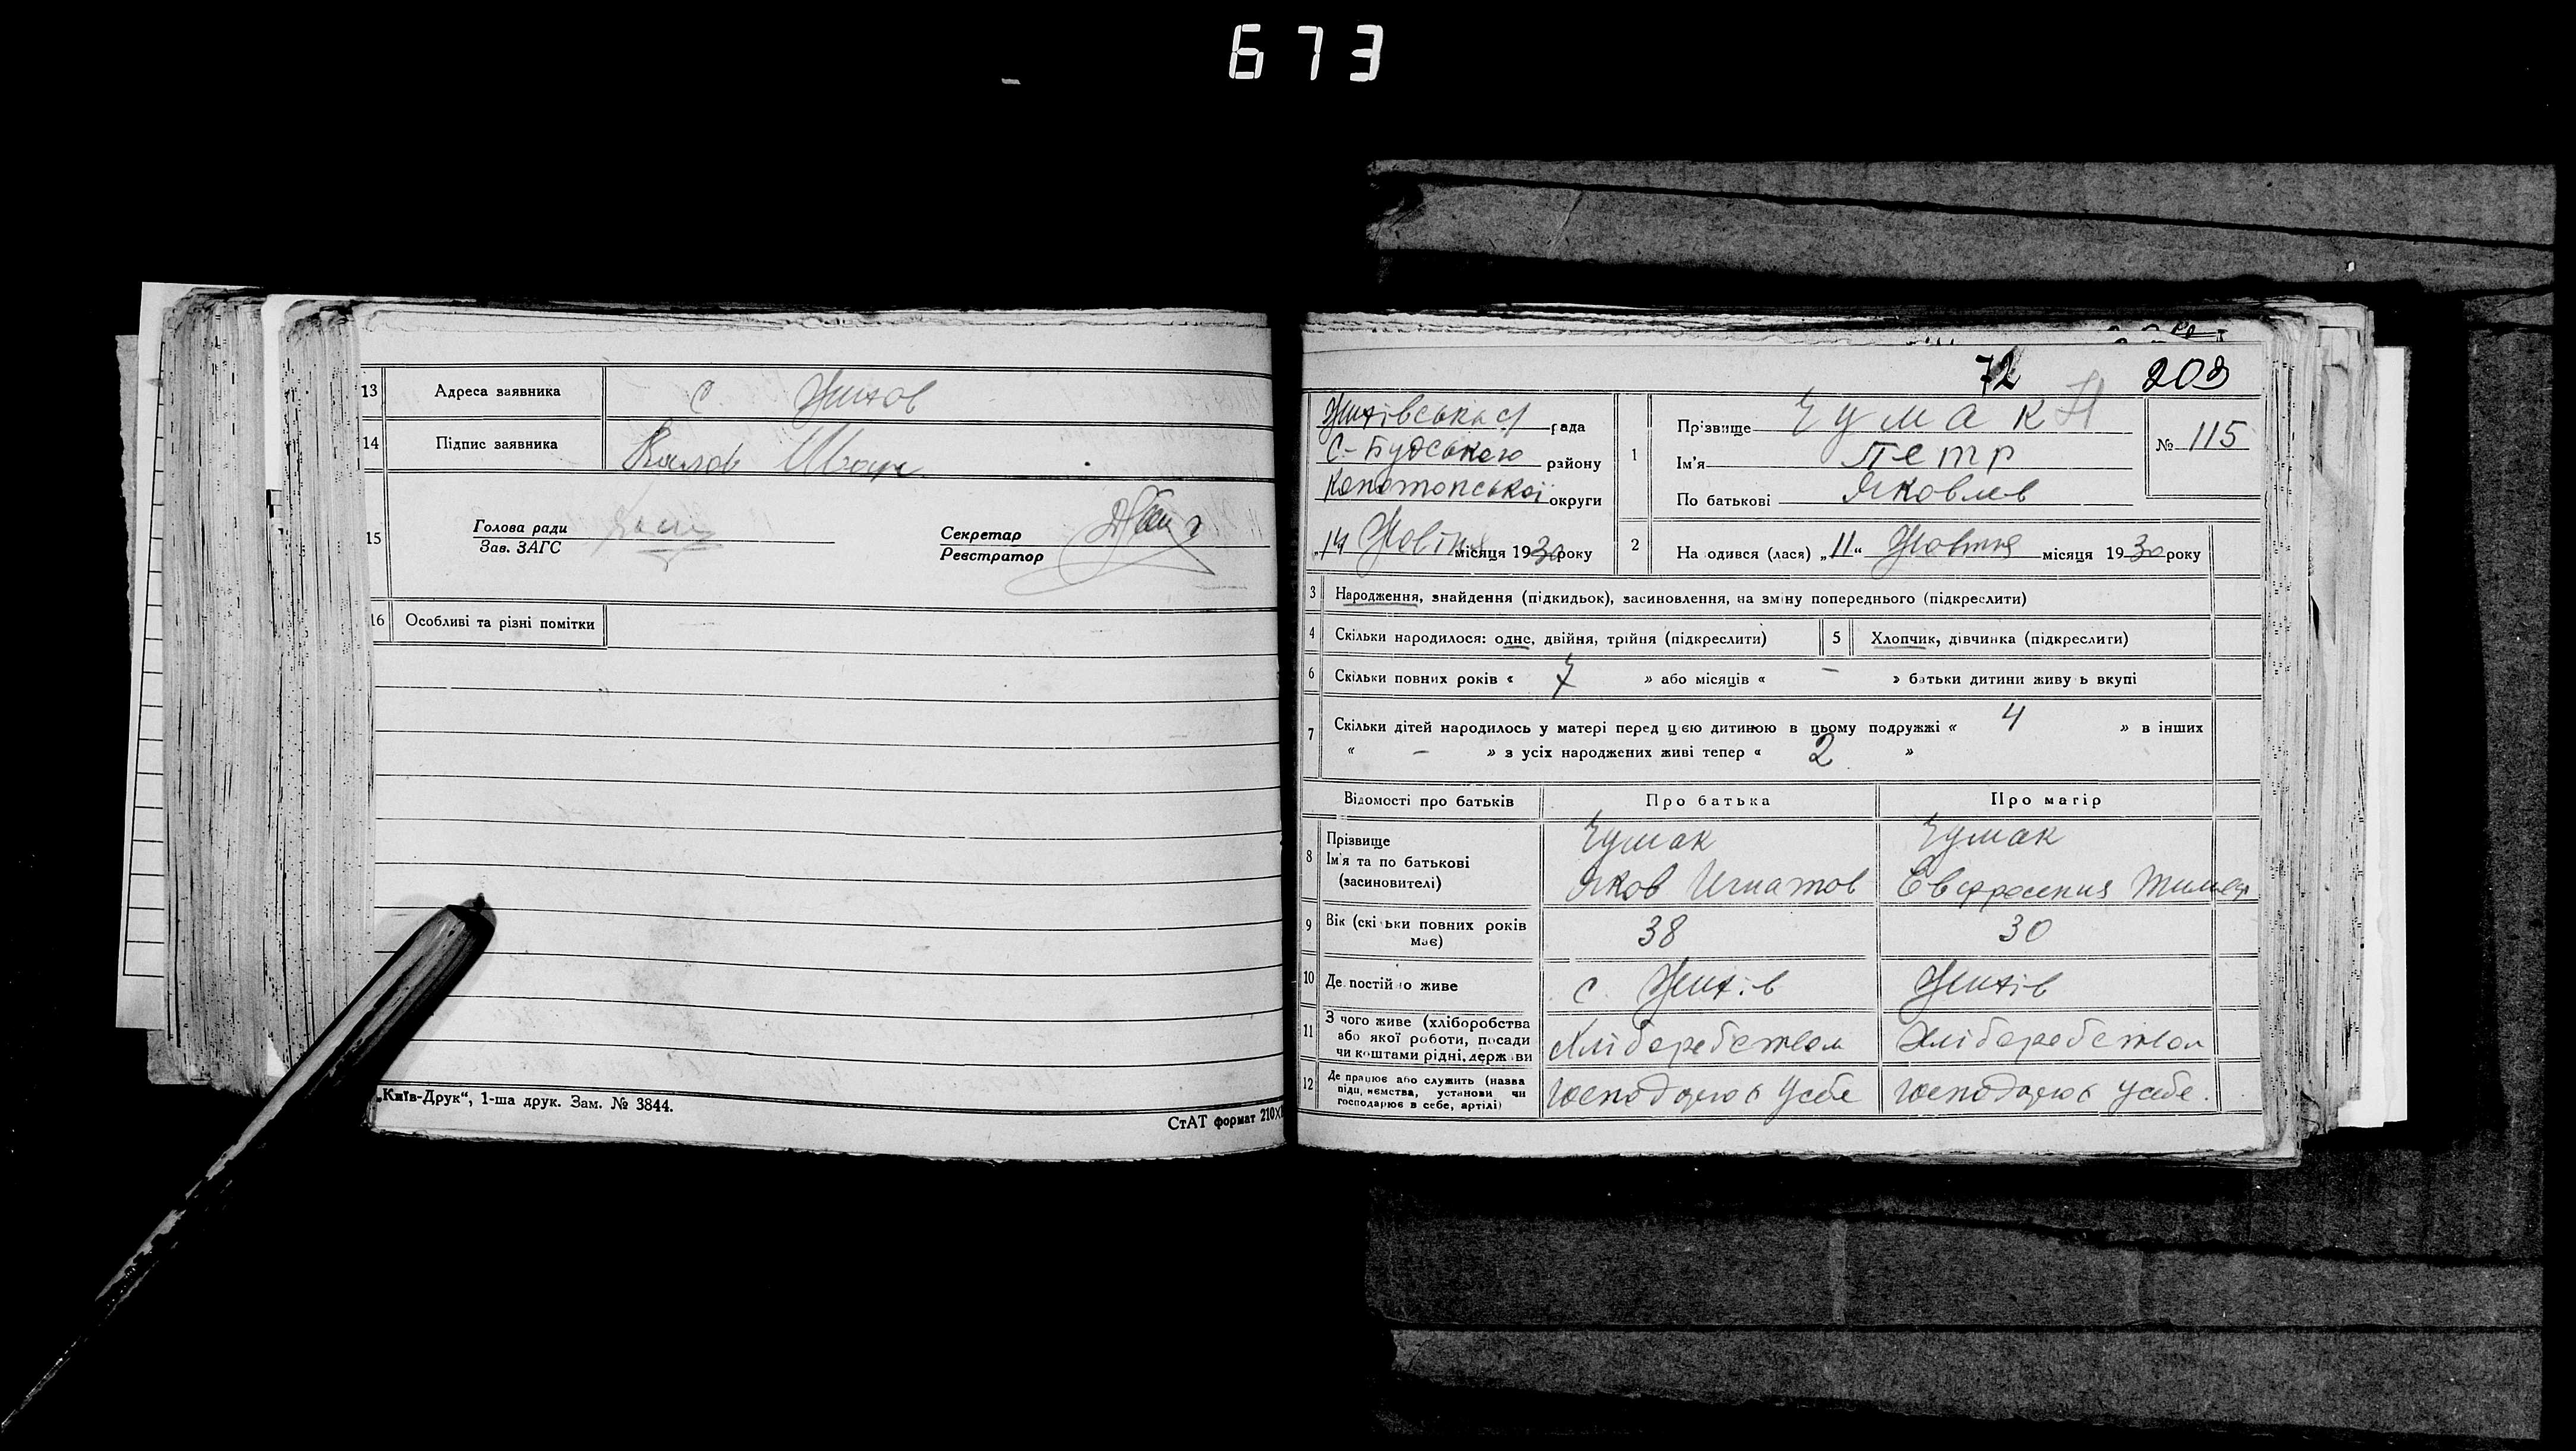 673
13 Адреса заявника с. Жихов
14 Підпис заявника
15 Голова ради
Зав. ЗАГС
Секретар
Реєстратор
16 Особливі та різні помітки
„Київ-Друк“, 1-ша друк. Зам. № 3844.
СтАТ формат 210×
72 203
Жихівська рада
С-Будського району
Конотопської округи
„14 Жовтня місяця 1930 року
1 Прізвище Чумак
Ім'я Петр
По батькові Яковлев
№ 115
2 На одився (лася) „11“ Жовтня місяця 1930 року
3 Народження, знайдення (підкидьок), засиновлення, на зміну попереднього (підкреслити)
4 Скільки народилося: одне, двійня, трійня (підкреслити) 5 Хлопчик, дівчинка (підкреслити)
6 Скільки повних років « 7 » або місяців « - » батьки дитини живу ь вкупі
7 Скільки дітей народилось у матері перед цією дитиною в цьому подружжі « 4 » в інших
« - » з усіх народжених живі тепер « 2 »
Відомості про батьків Про батька Про матір
8 Прізвище
Ім'я та по батькові
(засиновителі)
Чумак
Яков Игнатов
Чумак
Евфросения
9 Вік (скі ьки повних років
має)
38 30
10 Де постій о живе с. Жихів Жихів
11 З чого живе (хліборобства
або якої роботи, посади
чи коштами рідні, держ ви
Хліборобством Хліборобством
12 Де працює або служить (назва
підп, иємства, установи чи
господарює в себе, артілі)
господарює усебе господарює усебе.